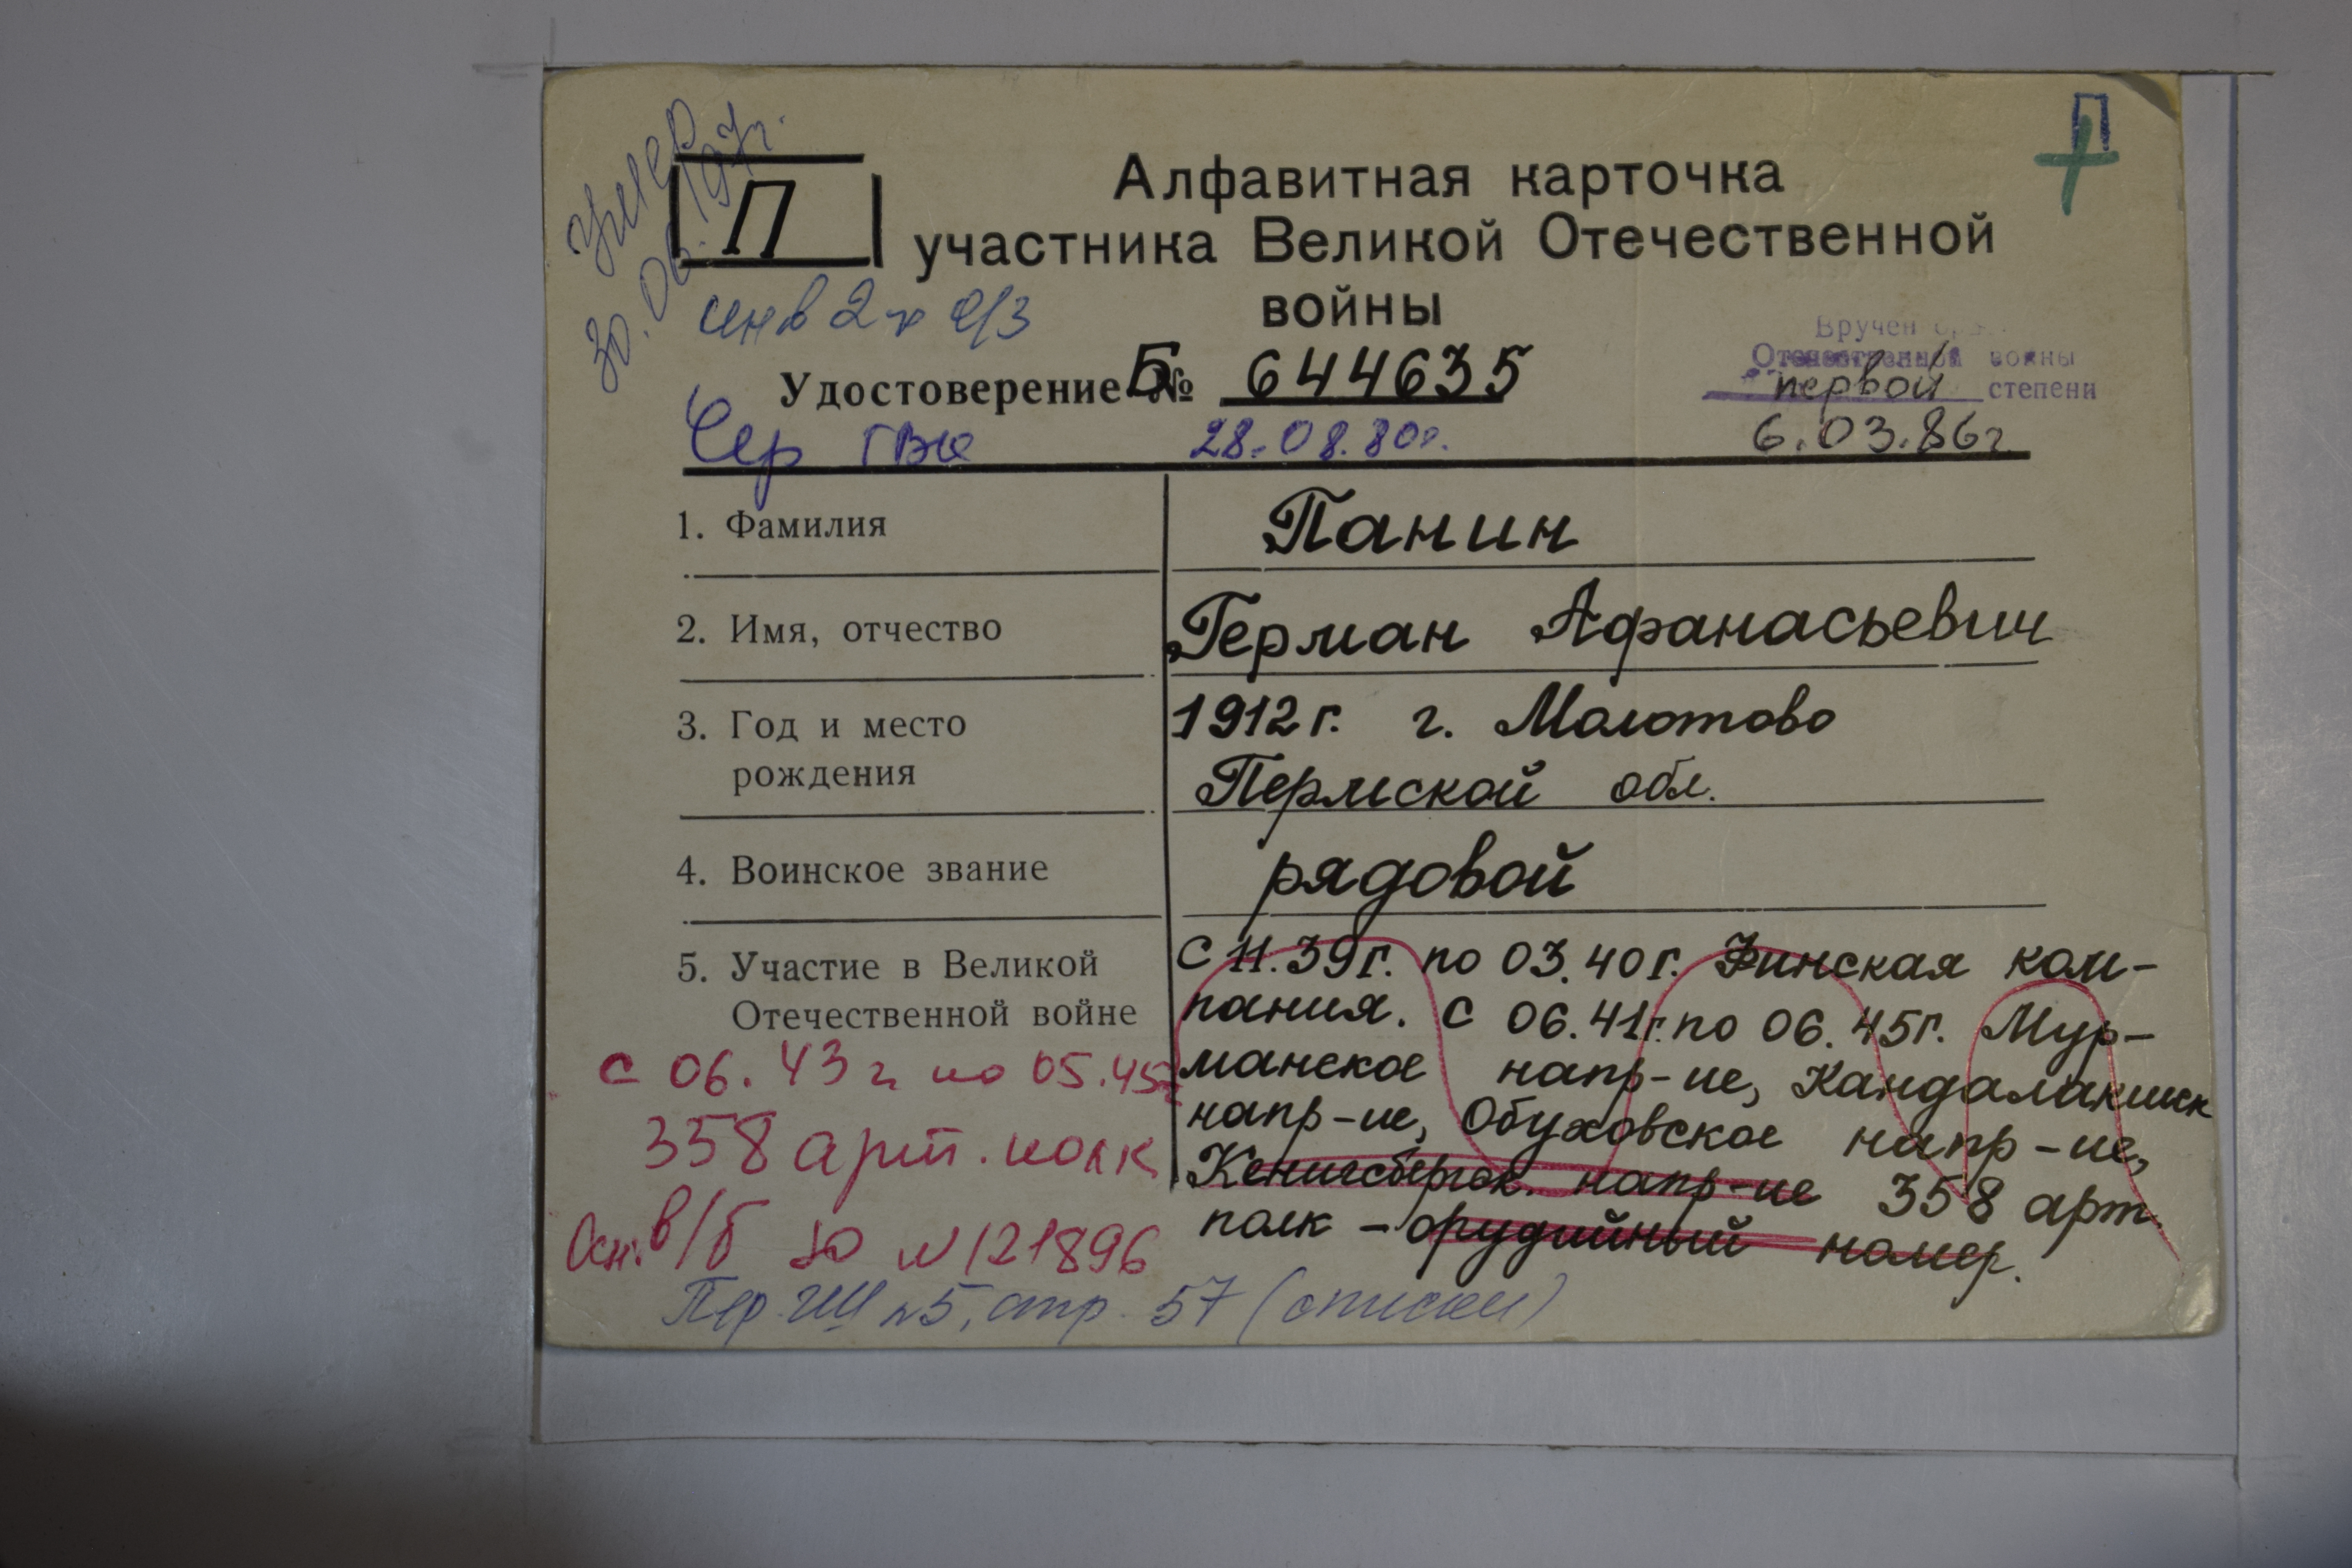 умер
30.06.197г.
П
П
Алфавитная карточка
участника Великой Отечественной
войны
инв 2 гр о/з
Вручен
Отечественной войны
первой степени
6.03.86г.
Удостоверение Б № 644635
Чер ГВК 28.08.80г.
1. Фамилия Панин
2. Имя, отчество Герман Афанасьевич
3. Год и место 1912г. г. Молотово
рождения Пермской обл.
4. Воинское звание рядовой
5. Участие в Великой
Отечественной войне
с 11.39г. по 03.40г. Финская ком-
пания. С 06.41г. по 06.45г. Мур-
манское напр-ие, Кандалакшск
напр-ие, Обуховское напр-ие,
Кенигсбергск. напр-ие 358 арт.
полк - орудийный номер.
с 06.43г. по 05.45г
358 арт. полк
Осн. в/б Ю N 121896
Пер. ГШ №5, стр. 57 (списки)